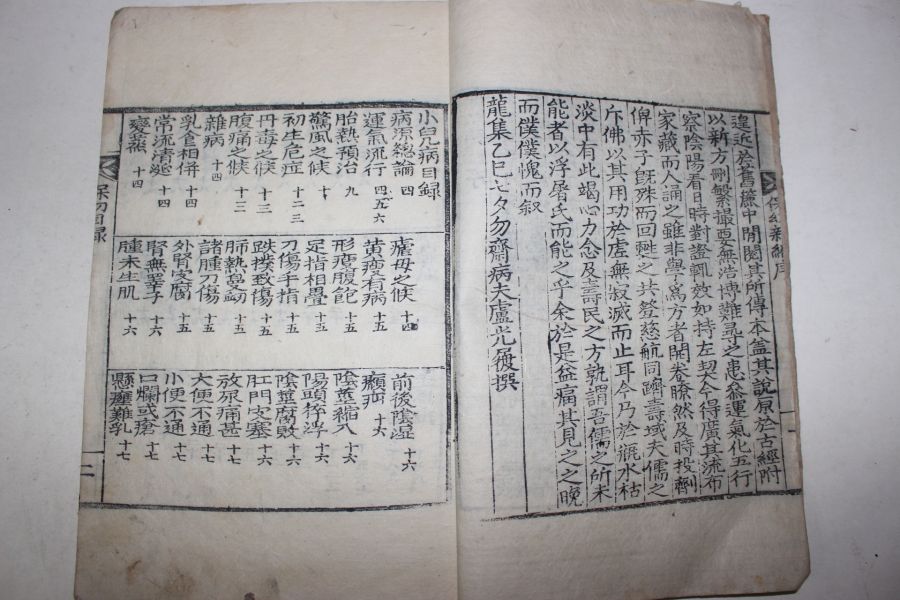 保幼新編序
遑近於舊簏中閒閱其所傳本盖其說原於古經附
以新方刪繁撮要無浩博難尋之患叅運氣化五行
察陰陽看日時對證輒效如持左契今得廣其流布
家藏而人誦之雖非學爲方者開卷瞭然及時投劑
俾赤子旣殊而回甦之共登慈航同躋壽域夫儒之
斥佛以其用功於虛無寂滅而止耳今乃於甁水枯
淡中有此竭心力念及壽民之方孰謂吾儒之所未
能者以浮屠氏而能之乎余於是益痛其見之之晩
而僕僕愧而叙
龍集乙巳七夕勿齋病夫盧光履撰
小兒病目録
病源總論 四
運氣流行 四五六
胎熱預治 九
驚風之候 十
初生危症 十二三
丹毒之候 十三
腹痛之候 十三
雜病 十四
乳食相併 十四
常流清涎 十四
變蒸 十四
瘧母之候 十四
黄瘦有病 十五
形瘦腹飽 十五
足指相疊 十五
刀傷手指 十五
跌撲致傷 十五
肺熱 十五
諸腫刀傷 十五
外腎 十五
腎無睪子 十六
腫未生肌 十六
前後陰澁 十六
癩疝 十六
陰莖縮入 十六
陽頭 十六
陰莖腐敗 十六
肛門 塞 十六
放尿痛甚 十七
大便不通 十七
小便不通 十七
口爛或瘡 十七
懸癰難乳 十七
保幼目録
二